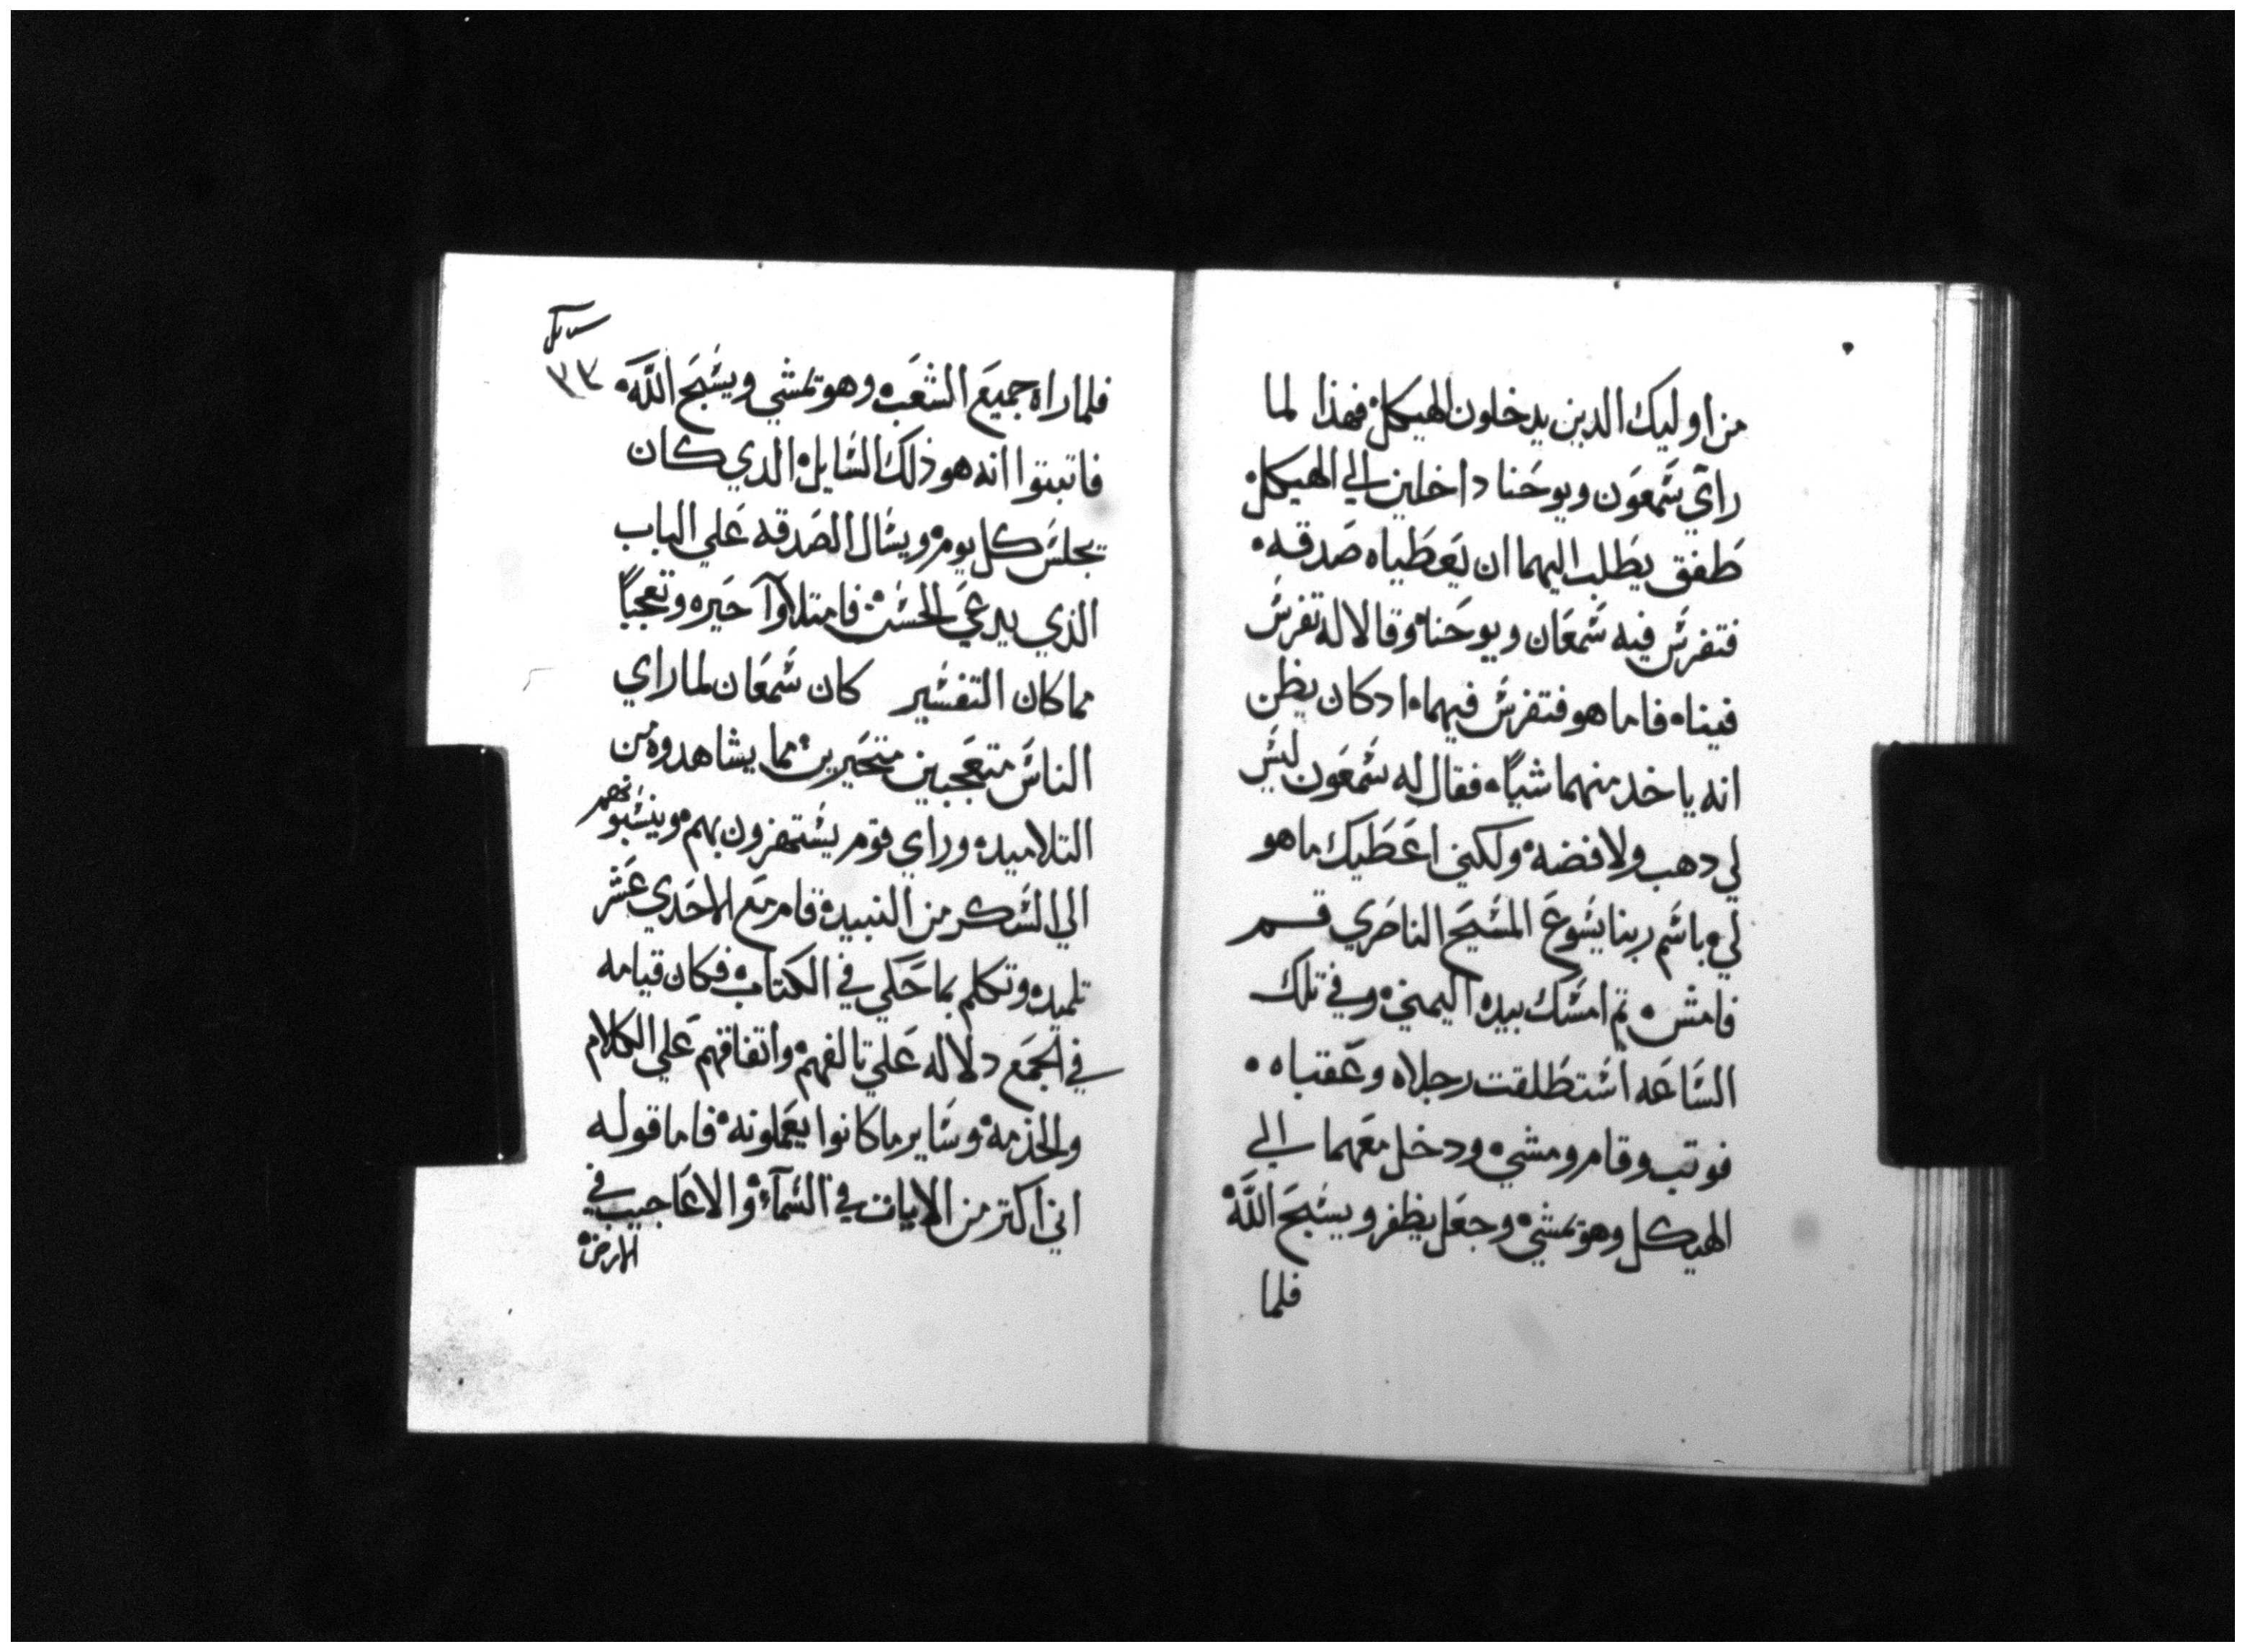 من اوليك الدين يدخلون الهيكل فهذا لما
راي شمعون ويوحنا داخلين الي الهيكل
طفق يطلب اليهما ان يعطياه صدقه
فتفرس فيه شمعان ويوحنا وقالا له تفرس
فيناه فاما هو فتفرس فيهما ادكان يظن
انه ياخد منهما شياً فقال له شمعون ليس
لي دهب ولا فضه ولكني اعطيك ما هو
لي باسم ربنا يسوع المسيح الناصري قم
فامش تم امسك بيده اليمني وفي تلك
الساعه استطلقت رجلاه وعقباه
فوتب وقام ومشي ودخل معهما الي
الهيكل وهو تمشي وجعل يظفر ويسبح اللَّه
فلما
٣٣
فلما راه جميع الشعب وهو تمشي ويسبح اللَّه
فاتبتوا انه هو ذلك السايل الدي كان
يجلس كل يوم ويسال الصدقه علي الباب
الذي يدعي الحسن فامتلاوآ حيره وتعجباً
مما كان التفسير كان شمعان لما راي
الناس متعجبين متحيرين مما يشاهدوه من
التلاميد وراي قوم يستهزون بهم وينسبوهم
الي السكر من النبيد قام مع الاحدي عشر
تلميد وتكلم بما حكي في الكتاب فكان قيامه
في الجمع دلاله علي تالفهم واتفاقهم علي الكلام
والخدمه وساير ما كانوا يعملونه فاما قوله
اني اكتر من الايات في السمآء والاعاجيب في
الارض